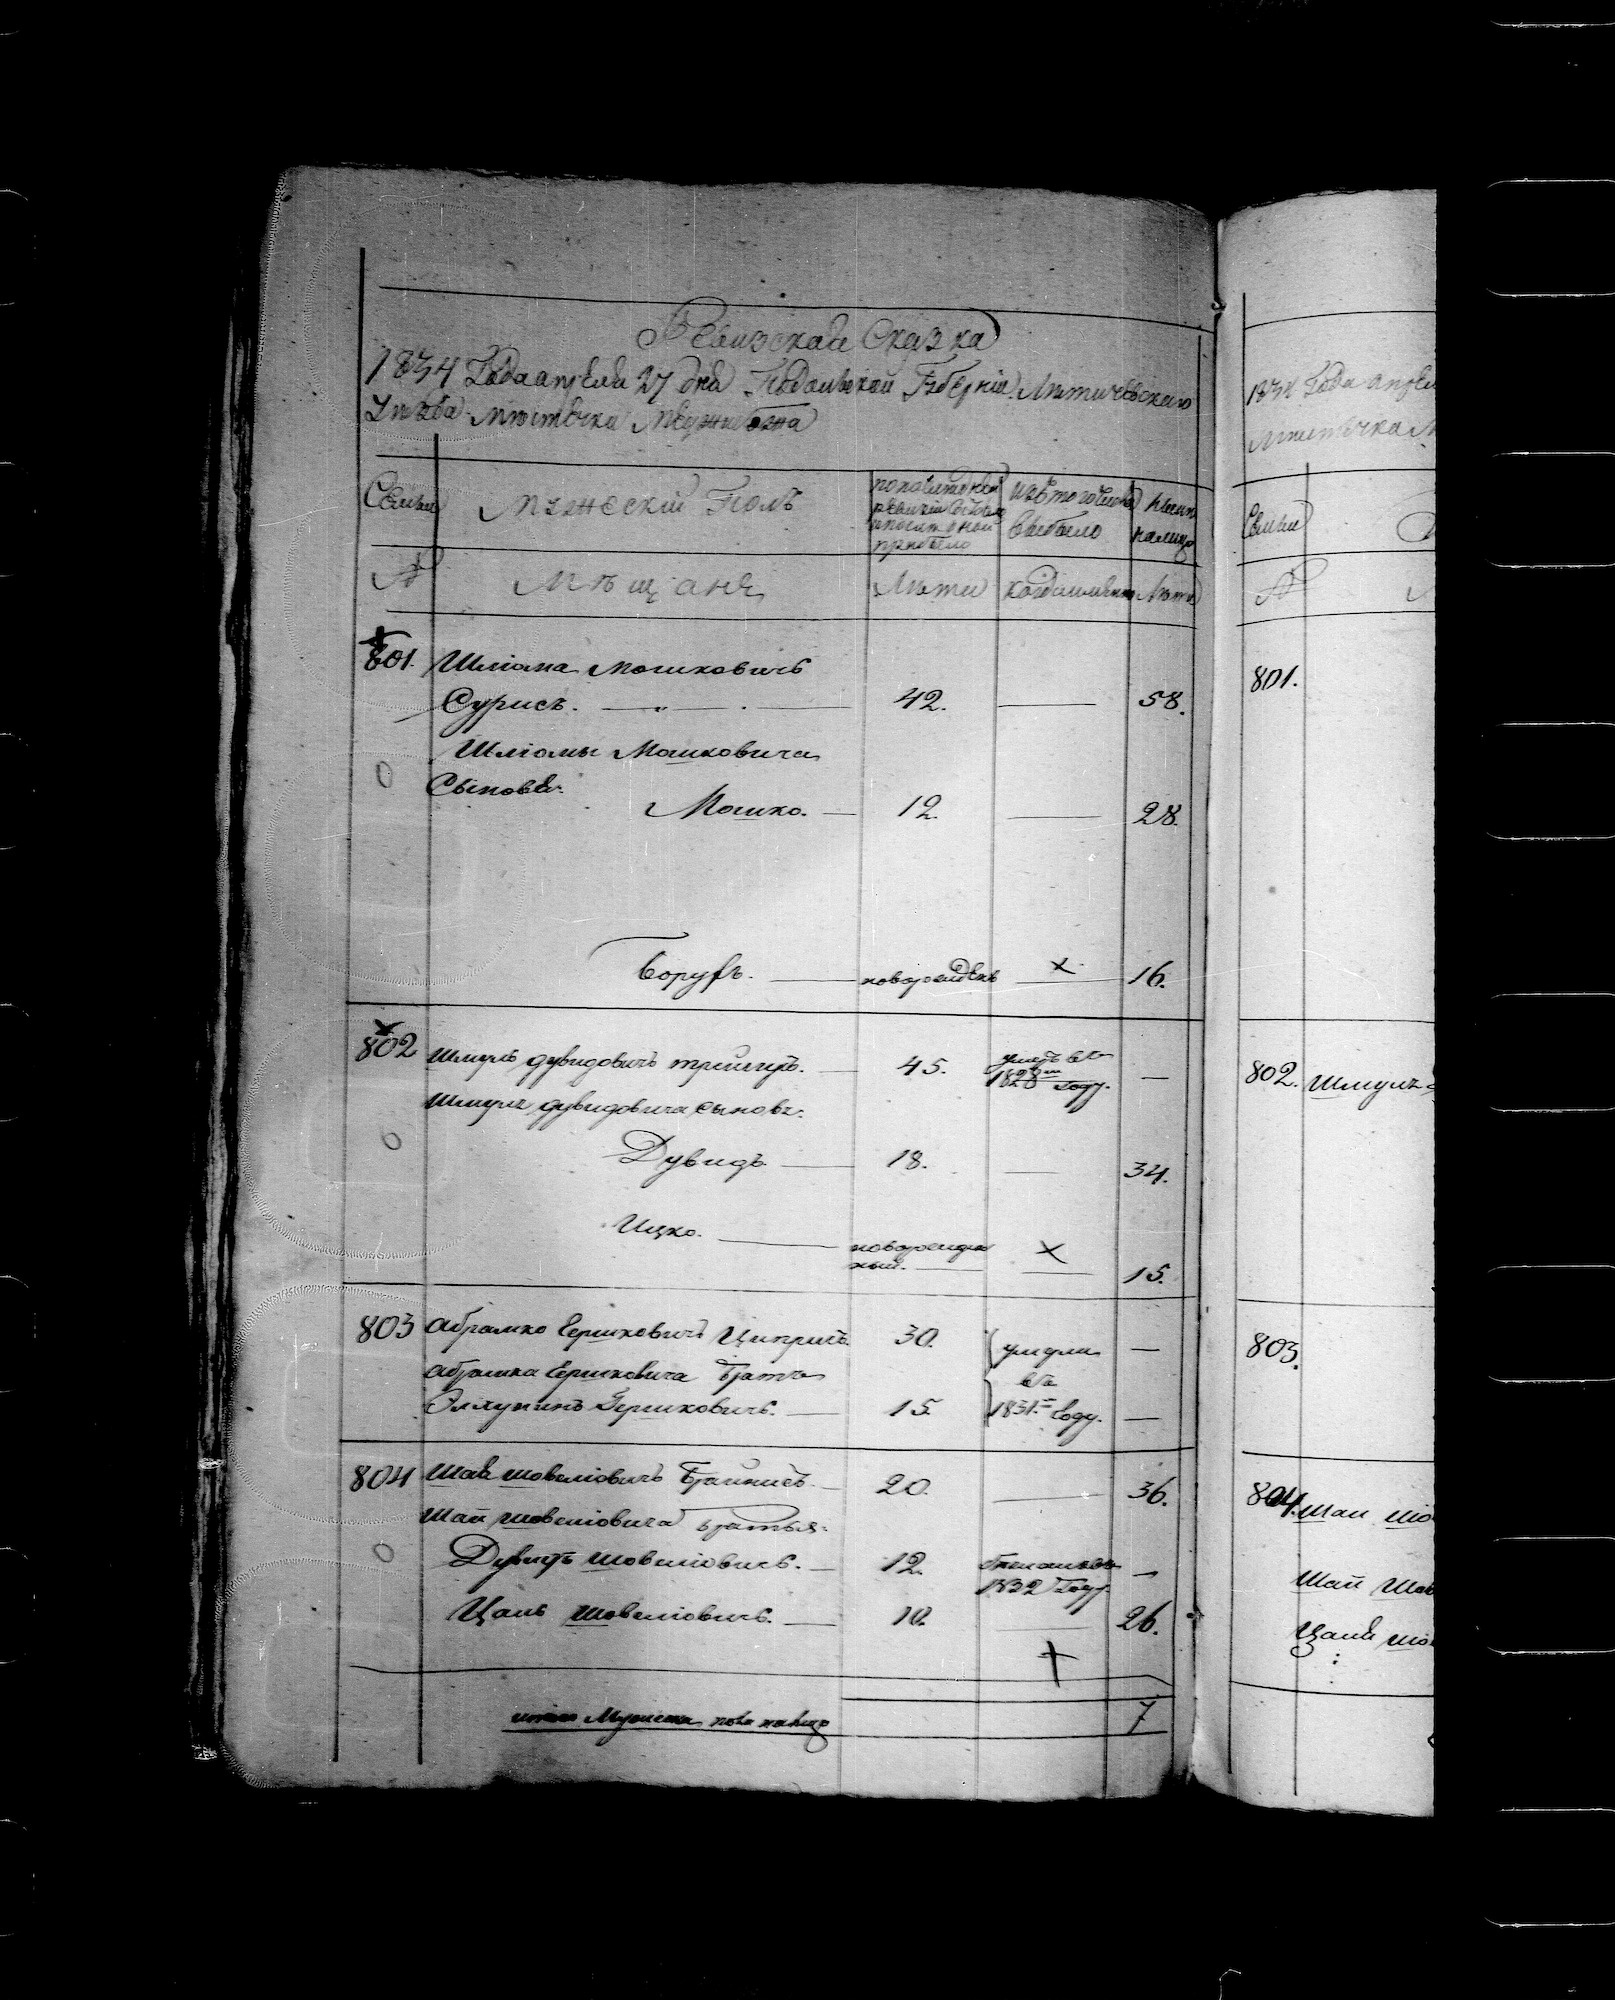 Ревизская Сказка
1834 Года апреля 27 дня Подольской Губерніи Летичевскаго
Уезда местечка Межибожа
Семьи
Мужескій Полъ
по последней
ревизіи состояло
и после оной
прибыло
Изъ того числа
выбыло
Ныне
налицо
№
Мещане
Лета
когда именно
Лета
801. Шліома Мошковичъ
Сурисъ. 42. 58.
Шліомы Мошковича
Сыновья:
Мошко. 12. 28.
Борухъ. новорожденъ × 16.
802 Шмуль Дувидовичъ 45. умеръ въ
1828м Году.
Шмуля Дувидовича сыновья:
Дувидъ 18. 34.
Ицко. новорожден
ный. × 15.
803 Абрамко Гершковичъ Циприсъ 30. умерли
Абрамка Гершковича Братъ въ
Гершковичъ. 15. 1831м Году.
804 Шая Шовеліовичъ 20. 36.
Шаи Шовеліовича Братья:
Дувидъ Шовеліовичъ. 12.
1832 Году
Цаль Шовеліовичъ. 10. 26.
итого Мужеска пола налицо 7
1834 Года апреля
местечка М
Семьи
№
801.
802. Шмуля
803.
804. Шаи Шо
Шаи Шов
Цаля Шо